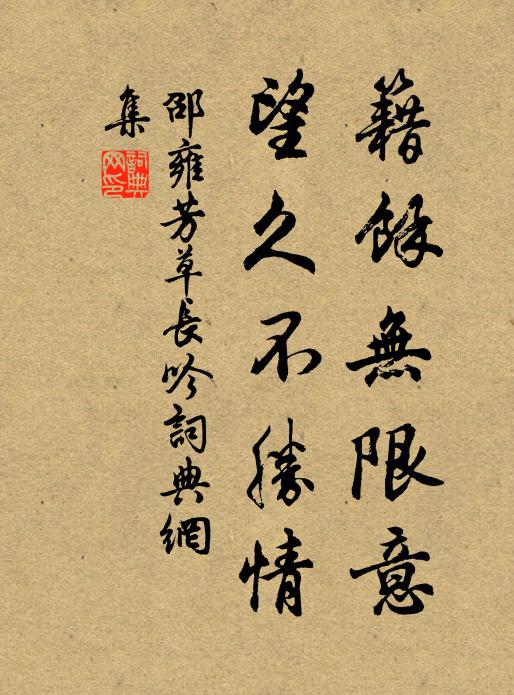 籍餘無限意
望久不勝情
邵雍芳草長吟詞典網
集
詞典
网印